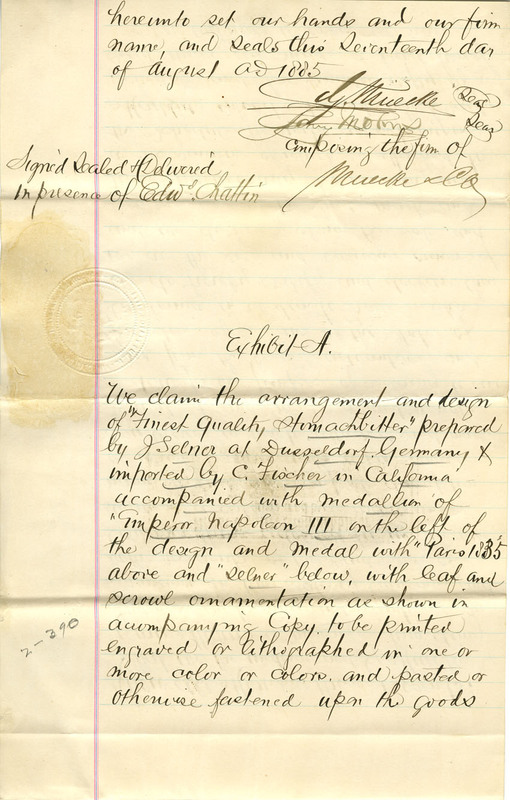 hereunto set our hands and our firm
name, and seals this Seventeenth day
of August AD 1885
G. Muecke Seal
Seal
Composing the firm of
Muecke & Co
Signed Sealed & Delivered
in presence of Edwd. Chattin
Exhibit A.
We claim the arrangement and design
of "Finest Quality Stomachbitter" prepared
by J Selner at Dusseldorf Germany &
imported by C. Fischer in California
accompanied with medallion of
"Emperor Napoleon III on the left of
the design and medal with "Paris 1855
above and "Selner" below, with leaf and
scrowl ornamentation as shown in
accompanying Copy. to be printed
engraved or lithographed in one or
more color or colors. and pasted or
otherwise fastened upon the goods
2-390